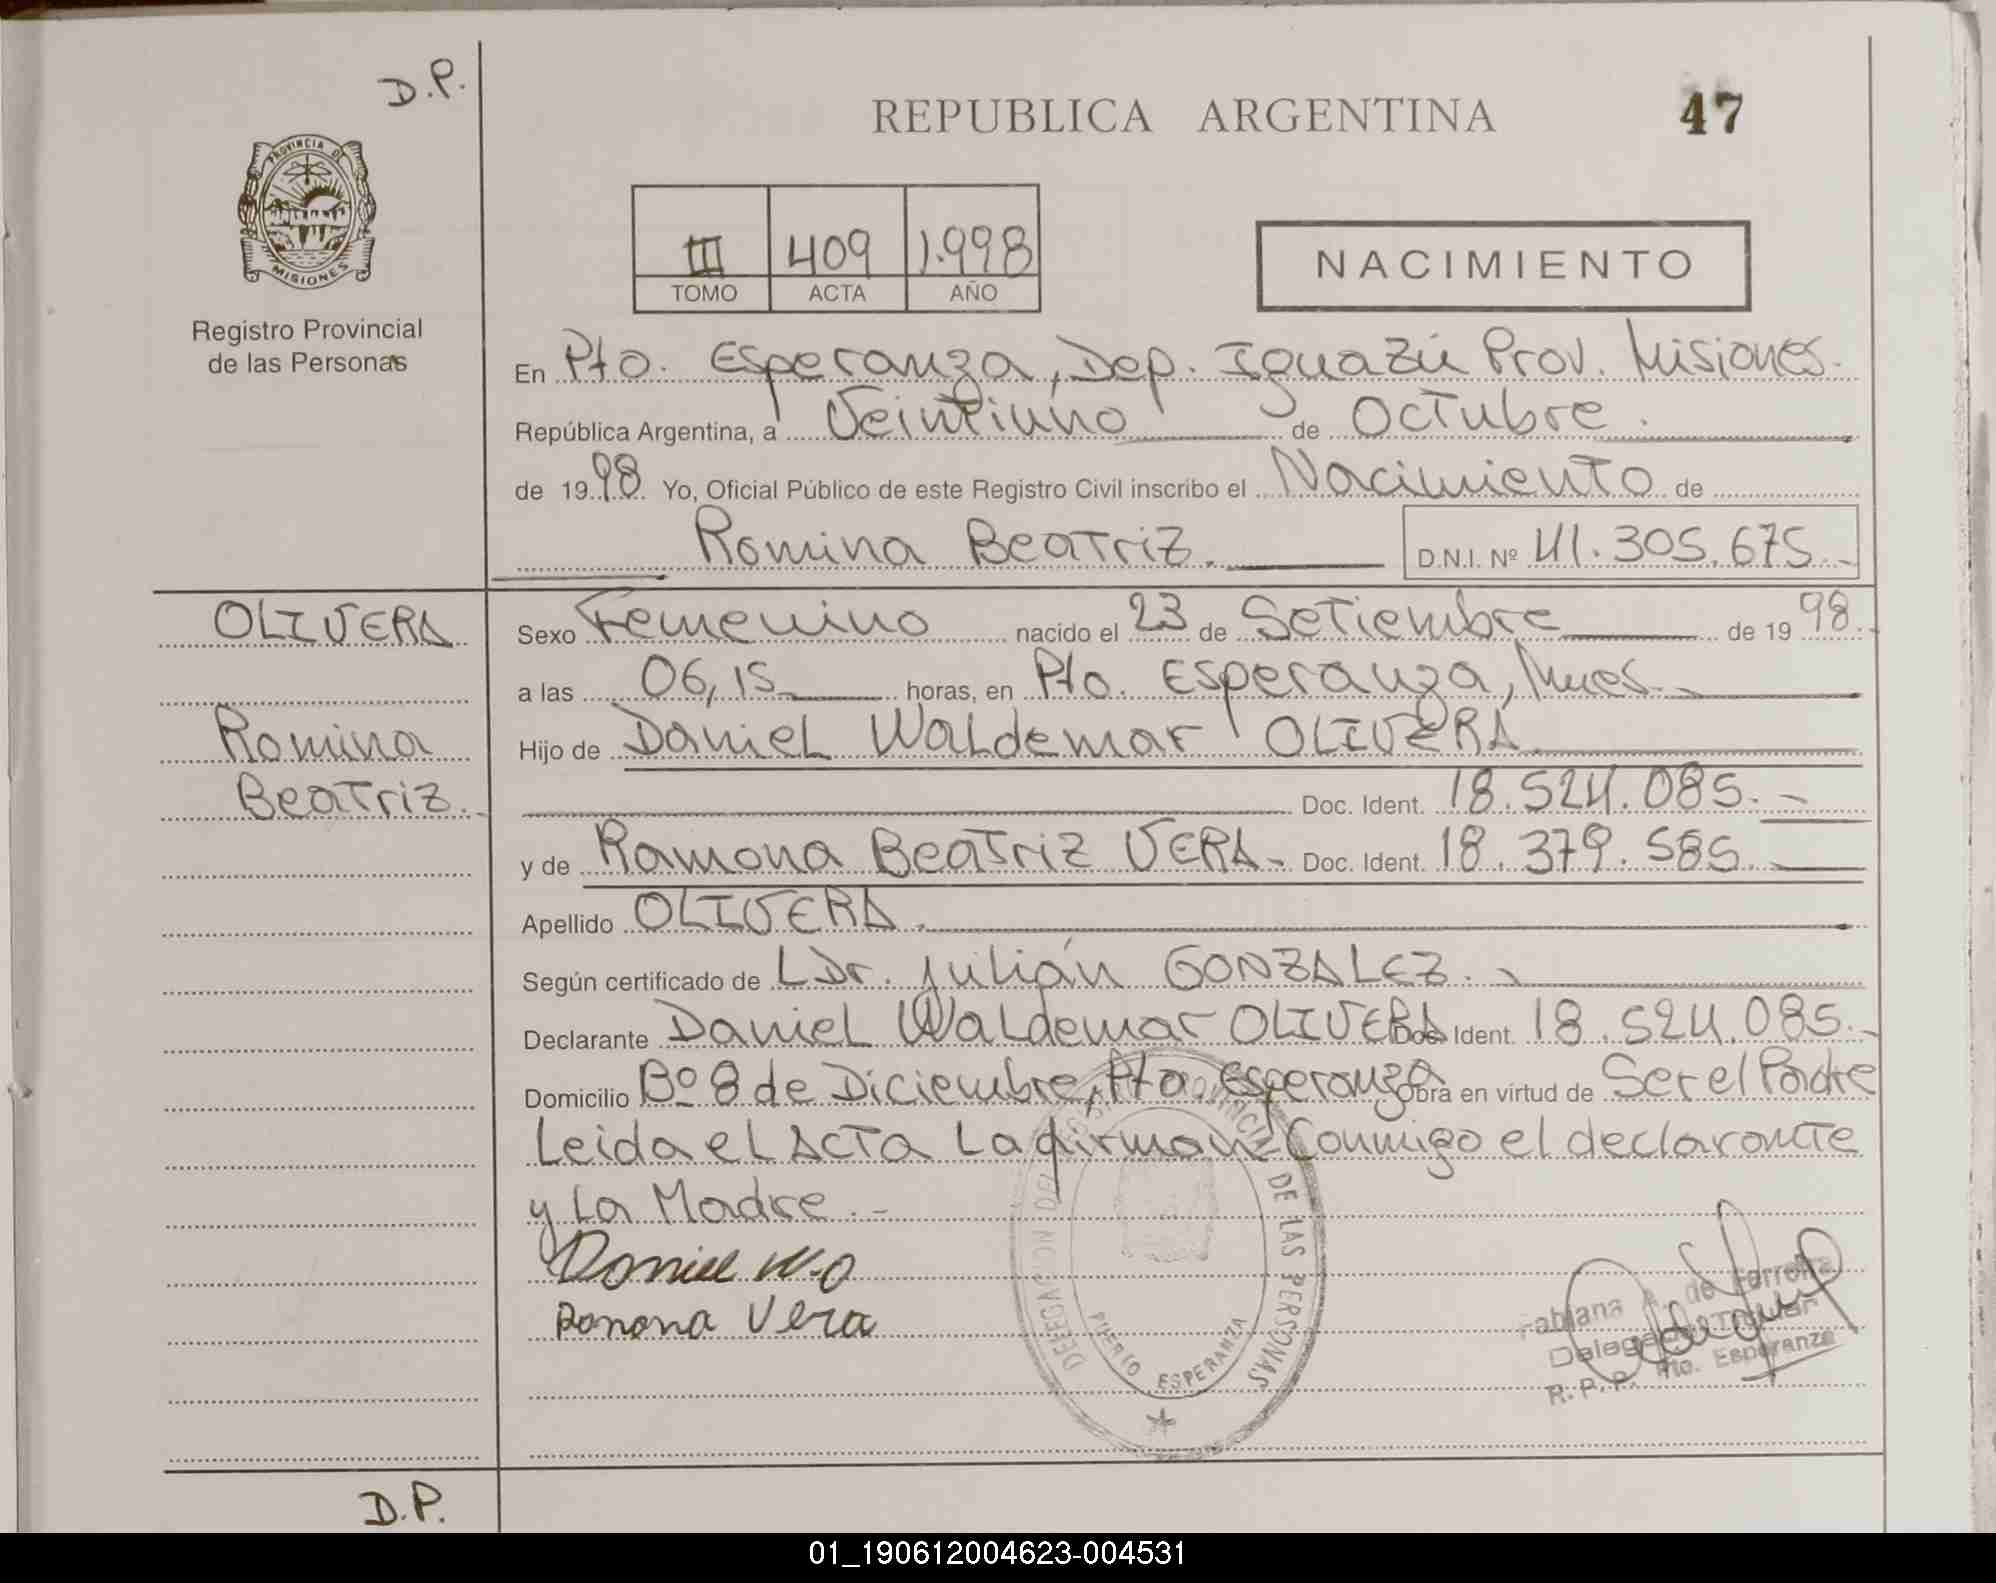 D.P.
REPUBLICA ARGENTINA
47
PROVINCIA DE
MISIONES
Registro Provincial
de las Personas
III 409 1.998
TOMO ACTA AÑO
NACIMIENTO
En Pto. Esperanza, Dep. Iguazú Prov. Misiones.
República Argentina, a Veintiuno de Octubre.
de 1998. Yo, Oficial Público de este Registro Civil inscribo el Nacimiento de
Romina Beatriz. D.N.I. Nº 41.305.675.-
OLIVERA
Romina
Beatriz.-
Sexo Femenino nacido el 23 de Setiembre de 1998.
a las 06,15 horas, en Pto. Esperanza, Mnes.-
Hijo de Daniel Waldemar OLIVERA
Doc. Ident. 18.524.085.-
y de Ramona Beatriz VERA.- Doc. Ident. 18.379.585.-
Apellido OLIVERA.
Según certificado de LDr. Julián GONZALEZ.-
Declarante Daniel Waldemar OLIVERA Doc. Ident. 18.524.085.-
Domicilio Bº 8 de Diciembre, Pto. Esperanza Obra en virtud de Ser el Padre
Leida el Acta La firman Conmigo el declarante
y La Madre.-
Daniel W.O
Ramona Vera
DELEGACION DEL PROVINCIAL DE LAS PERSONAS
PUERTO ESPERANZA
Fabiana A. de Ferreira
Delegada Titular
R.P.P. Pto. Esperanza
D.P.
01_190612004623-004531